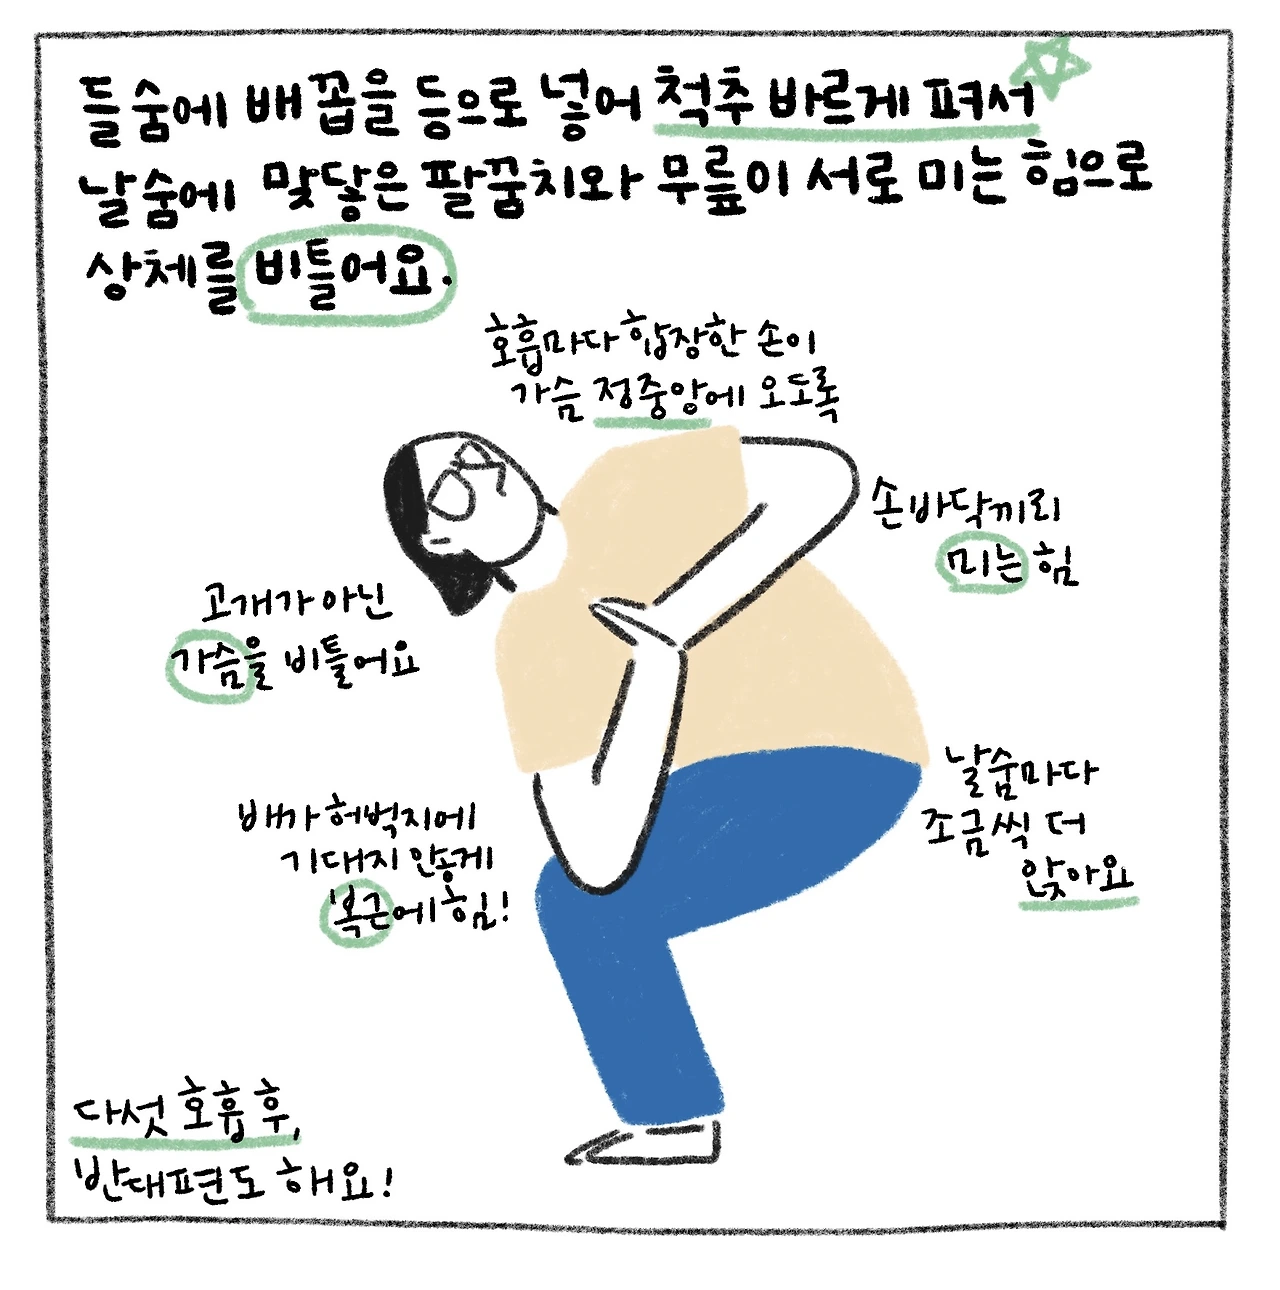 들숨에 배꼽을 등으로 넣어 척추 바르게 펴서
날숨에 맞닿은 팔꿈치와 무릎이 서로 미는 힘으로
상체를 비틀어요.
호흡마다 합장한 손이
가슴 정중앙에 오도록
손바닥끼리
미는 힘
고개가 아닌
가슴을 비틀어요
날숨마다
조금씩 더
앉아요
배가 허벅지에
기대지 않게
복근에 힘!
다섯 호흡 후,
반대편도 해요!